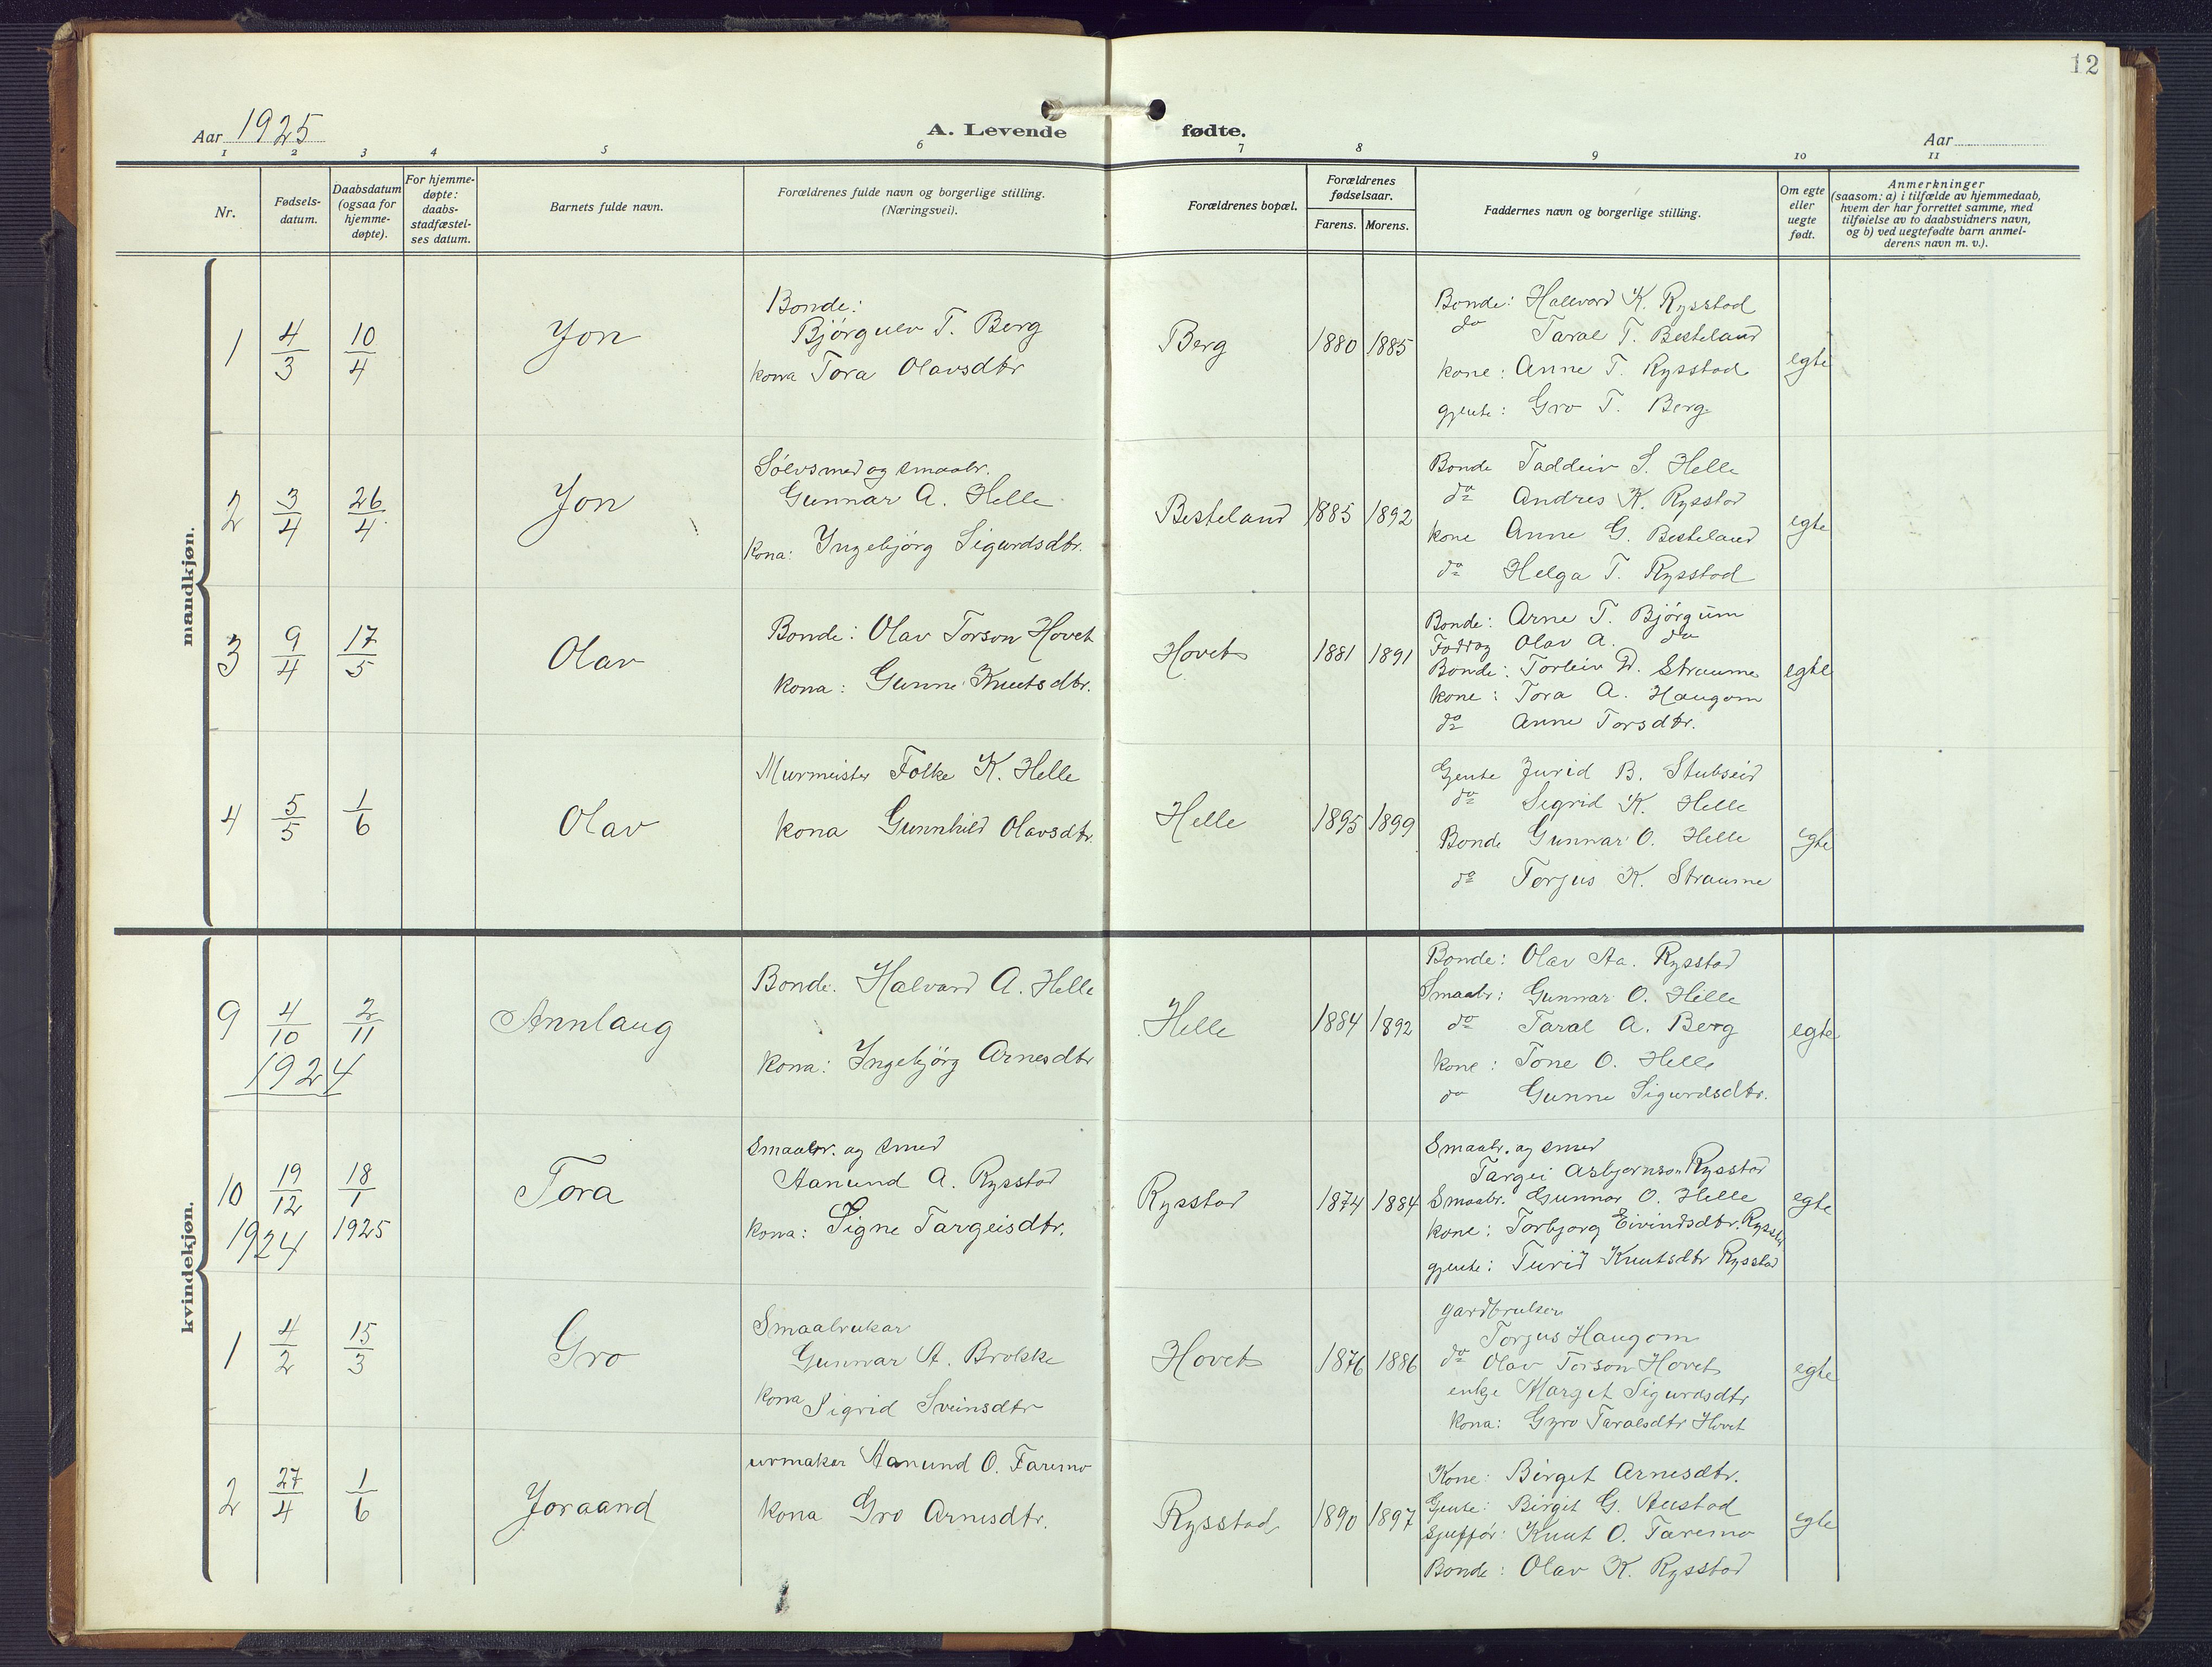 12
Aar 1925
A. Levende fødte.
Aar
1 2 3 4 5 6 7 8 9 10 11
Nr.
Fødsels-
datum.
Daabsdatum
(ogsaa for
hjemme-
døpte).
For hjemme-
døpte:
daabs-
stadfæstel-
ses datum.
Barnets fulde navn.
Forældrenes fulde navn og borgerlige stilling.
(Næringsvei).
Forældrenes bopæl.
Forældrenes
fødselsaar.
Farens. Morens.
Faddernes navn og borgerlige stilling.
Om egte
eller
uegte
født.
Anmerkninger
(saasom: a) i tilfælde av hjemmedaab,
hvem der har forrettet samme, med
tilføielse av to daabsvidners navn,
og b) ved uegtefødte barn anmel-
derens navn m. v.).
mandkjøn.
1 4/3 10/4 Jon
Bonde:
Bjórgulv T. Berg
kona Tora Olavsdtr
Berg 1880 1885
Bonde: Halvord K. Rysstad
do Taral T. Besteland
kone: Anne T. Rysstad
gjente: Gro T. Berg
egte
2 3/4 26/4 Jon
Sólvsmed og smaabr.
Gunnar A. Helle
kona: Ingebjórg Sigurdsdtr.
Besteland 1885 1892
Bonde Taddeiv S. Helle
do Andres K. Rysstad
kone Anne G. Besteland
do Helga T. Rysstad
egte
3 9/4 17/5 Olav
Bonde: Olav Torson Hovet
kona: Gunne Knutsdtr.
Hovet 1881 1891
Bonde: Arne T. Bjórgum
Olav A. do
Bonde: Torleiv D. Straume
kone: Tora A. Haugom
do Anne Torsdtr.
egte
4 5/5 1/6 Olav
Murmeister Folke K. Helle
kona Gunnhild Olavsdtr.
Helle 1895 1899
Gjente Jurid B. Stubseid
do Sigrid K. Helle
Bonde Gunnar O. Helle
do Torjus K. Straume
egte
kvindekjøn.
9 4/10 2/11 Annlaug
1924
Bonde: Halvard A. Helle
kona: Ingebjórg Arnesdtr
Helle 1884 1892
Bonde: Olav Aa. Rysstad
Smaabr: Gunnar O. Helle
do Taral A. Berg
kone: Tone O. Helle
do Gunne Sigurdsdtr.
egte
10 19/12 18/1 Tora
1924 1925
Smaabr. og smed
Aanund A. Rysstad
kona: Signe Targeisdtr.
Rysstad 1874 1884
Smaabr. og smed
Targei Asbjornson Rysstad
Smaabr. Gunnar O. Helle
kone: Torbjorg Eivindsdtr. Rysstad
gjente: Turid Knutsdtr Rysstad
egte
1 4/2 15/3 Gro
Smaabrukar
Gunnar A. Brokke
kona Sigrid Sveinsdtr
Hovet 1876 1886
gardbruker
Torjus Haugom
do Olav Torson Hovet
enkje Margit Sigurdsdtr
kona: Gyro Taralsdtr Hovet
egte
2 27/4 1/6 Joraand
urmaker Aanund O. Faremo
kona Gro Arnesdtr.
Rysstad 1890 1897
Kone: Birgit Arnesdtr.
Gjente: Birgit G. Austad
Sjuffór: Knut O. Faremo
Bonde: Olav K. Rysstad
egte